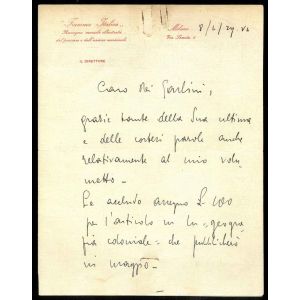 "Fiamma Italica"
Rassegna mensile illustrata
del pensiero e dell'azione nazionale
Milano 8/4/29 VII
Via
IL DIRETTORE
Caro Dei Gaslini,
grazie tante della Sua ultima
e delle cortesi parole anche
relativamente al mio volu
metto -
Le accludo assegno L. 100
per l'articolo in la = geogra
fia coloniale = che pubblicherò
in maggio -